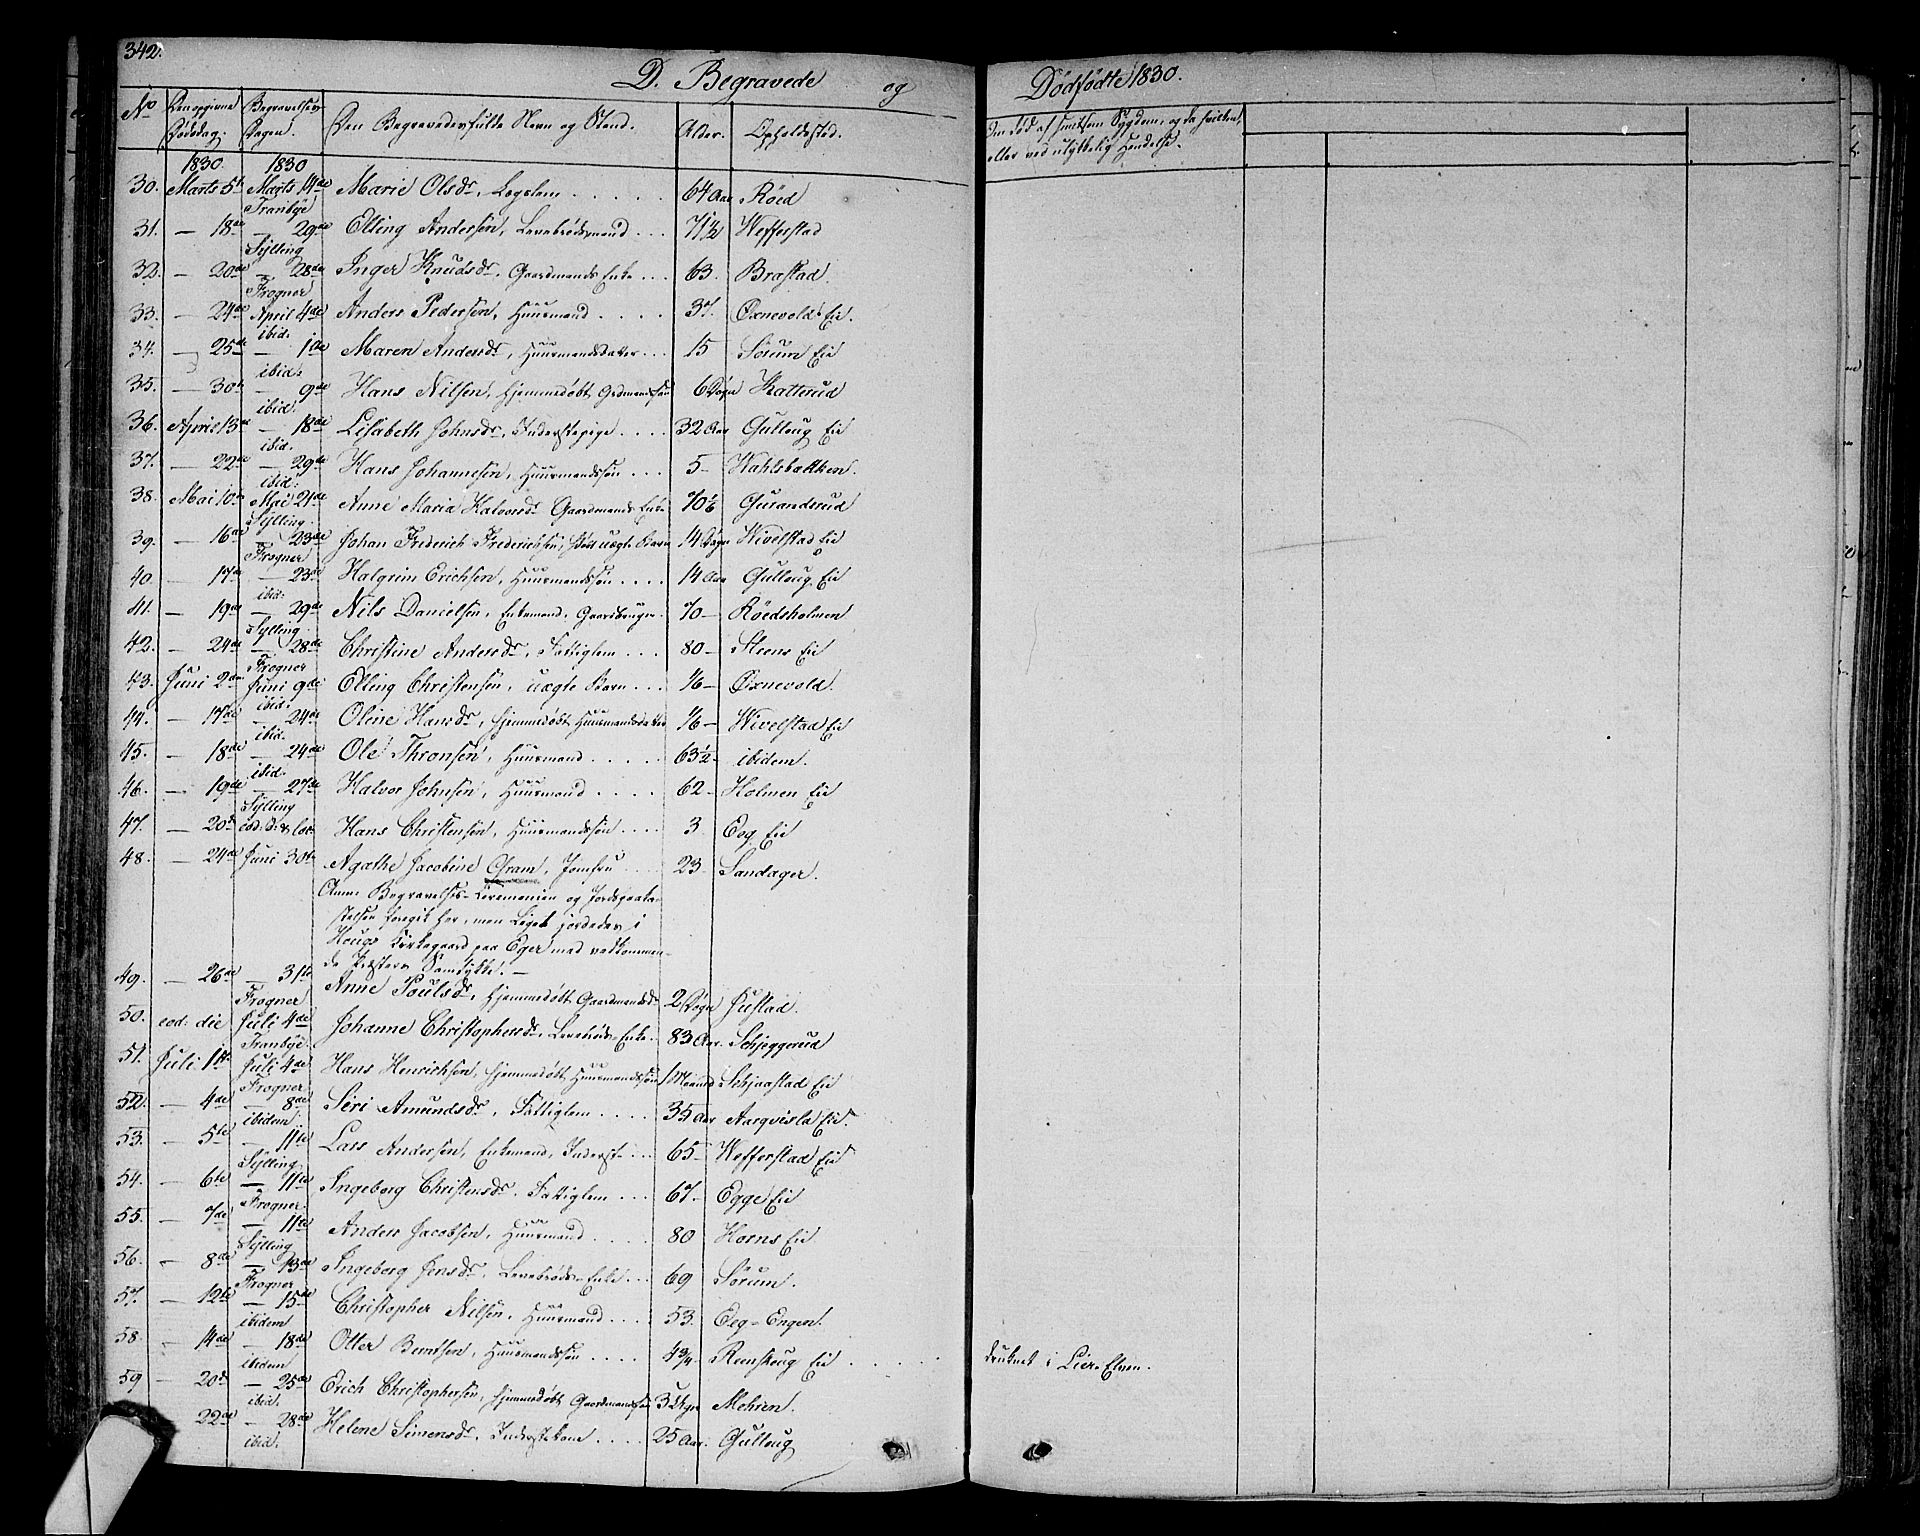 342.
D. Begravede og Dødfødte 1830.
No Den opgivne Dødsdag. Begravelses-Dagen. Den Begravedes fulde Navn og Stand. Alder. Opholdssted. Om død af smitsom Sygdom, og da hvilken, eller ved ulykkelig Hendelse.
1830. 1830
30. Marts 5te Marts 14de Marie Olsdr, Lægslem 64 Aar Røed
Tranbye
31. — 18de — 29de Elling Andersen, Levebrødsmand 71½ Wefferstad
Sylling
32. — 20de — 28de Inger Knudsdr, Gaardmands Enke 63. Brastad
Frogner
33. — 24de April 4de Anders Pedersen, Huusmand 37. Øxnevolds Eie.
ibid.
34. — 25de — 1de Maren Andersdr, Huusmandsdatter 15 Sørum Eie
ibid.
35. — 30te — 9de Hans Nilsen, hjemmedøbt Grdmandssøn 6 Døgn Katterud
ibid.
36. April 13de — 18de Lisabeth Johnsdr, Inderstepige 32 Aar Gulloug Eie
ibid.
37. — 22de — 29de Hans Johannesen, Huusmandssøn 5 — Wahlsbakken.
ibid.
38. Mai 10de Mai 21de Anne Maria Halvorsdr Gaardmands Enke 70½ Gusandsrud
Sylling.
39. — 16de — 23de Johan Frederich Frederichsen, uægte Barn 14 Døgn Wivelstad Eie
Frogner
40. — 17de — 23de Halgrim Erichsen, Huusmandssøn 14 Aar Gulloug Eie
ibid.
41. — 19de — 29de Nils Danielsen, Enkemand, Gaardbruger 70 — Røedsholmen
Sylling
42. — 24de — 28de Christine Andersdr, Fattiglem 80 — Steens Eie
Frogner
43. Juni 2den Juni 9de Elling Christensen, uægte Barn ⅙ — Øxnevold.
ibid.
44. — 17de — 24de Oline Hansdr, hjemmedøbt Huusmandsdatter ⅙ — Wivelstad Eie
ibid.
45. — 18de — 24de Ole Thronsen, Huusmand 63½ — ibidem.
ibid.
46. — 19de — 27de Halvor Johnsen, Huusmand 62 — Holmen Eie
Sylling
47. — 20de eod: d: & loc: Hans Christensen, Huusmandssøn 3. Eeg Eie
48. — 24de Juni 30te Agathe Jacobine Gram, Jomfru 23 — Sandager.
Anm: Begravelses-Ceremonien og Jordspaaka-
stelsen foregik her, men Liget jordedes i
Hougs Kirkegaard paa Eger med vedkommen-
de Præsters Samtykke. —
49. — 26de — 31te Anne Poulsdr, hjemmedøbt Gaardmandsdr 2 Døgn Justad.
Frogner
50. eod: die Juli 4de Johanne Christophersdr, Levebrøds-Enke 83 Aar. Schjeggerud
Tranbye.
51. Juli 1te Juli 4de Hans Henrichsen, hjemmedøbt Huusmandssøn 1 Maaned Schjaastad Eie
Frogner
52. — 4de — 8de Siri Amundsdr, Fattiglem 35 Aar Aarqvisla Eie.
ibidem
53. — 5te — 11te Lars Andersen, Enkemand, Inderst 65 — Wefferstad Eie
Sylling
54. — 6te — 11te Ingeborg Christensdr, Fattiglem 67 — Egge Eie
Frogner
55. — 7de — 11te Anders Jacobsen, Huusmand 80 Horns Eie
Sylling
56. — 8de — 13de Ingeborg Jensdr, Levebrøds-Enke 69 Sørum.
Frogner
57. — 12te — 15de Christopher Nilsen, Huusmand 53. Eeg-Engen.
ibidem
58. — 14de — 18de Otter Berntsen, Huusmandssøn 4¾ Renskoug Eie druknet i Lier-Elven.
ibidem
59 — 20de — 25de Erich Christophersen, hjemmedøbt Gaardmandssøn 3 Uger Mehren.
ibid.
22de — 28de Helene Simensdr, Inderstekone 25 Aar. Gulloug
ibid.